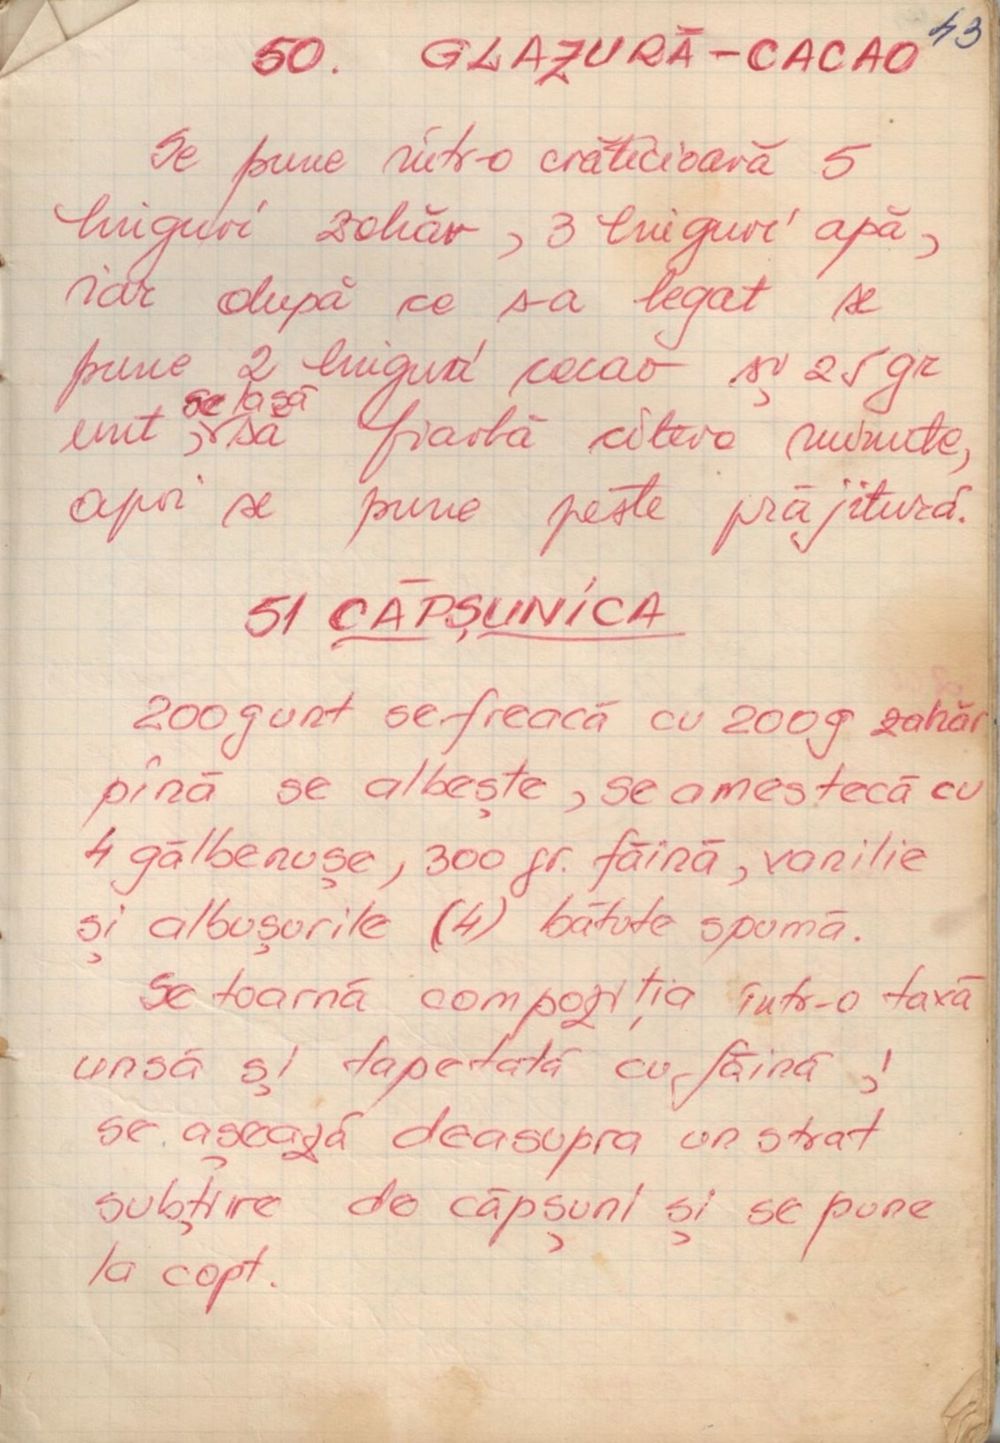 43
50. GLAZURĂ-CACAO
Se pune într-o crăticioară 5
linguri zahăr, 3 linguri apă,
iar după ce s-a legat se
pune 2 linguri cacao și 25 gr
unt, se lasă să fiarbă cîteva minute,
apoi se pune peste prăjitură.
51 CĂPȘUNICA
200g unt se freacă cu 200g zahăr
pînă se albește, se amestecă cu
4 gălbenușe, 300 gr. făină, vanilie
și albușurile (4) bătute spumă.
Se toarnă compoziția într-o tavă
unsă și tapetată cu făină,
se așează deasupra un strat
subțire de căpșuni și se pune
la copt.